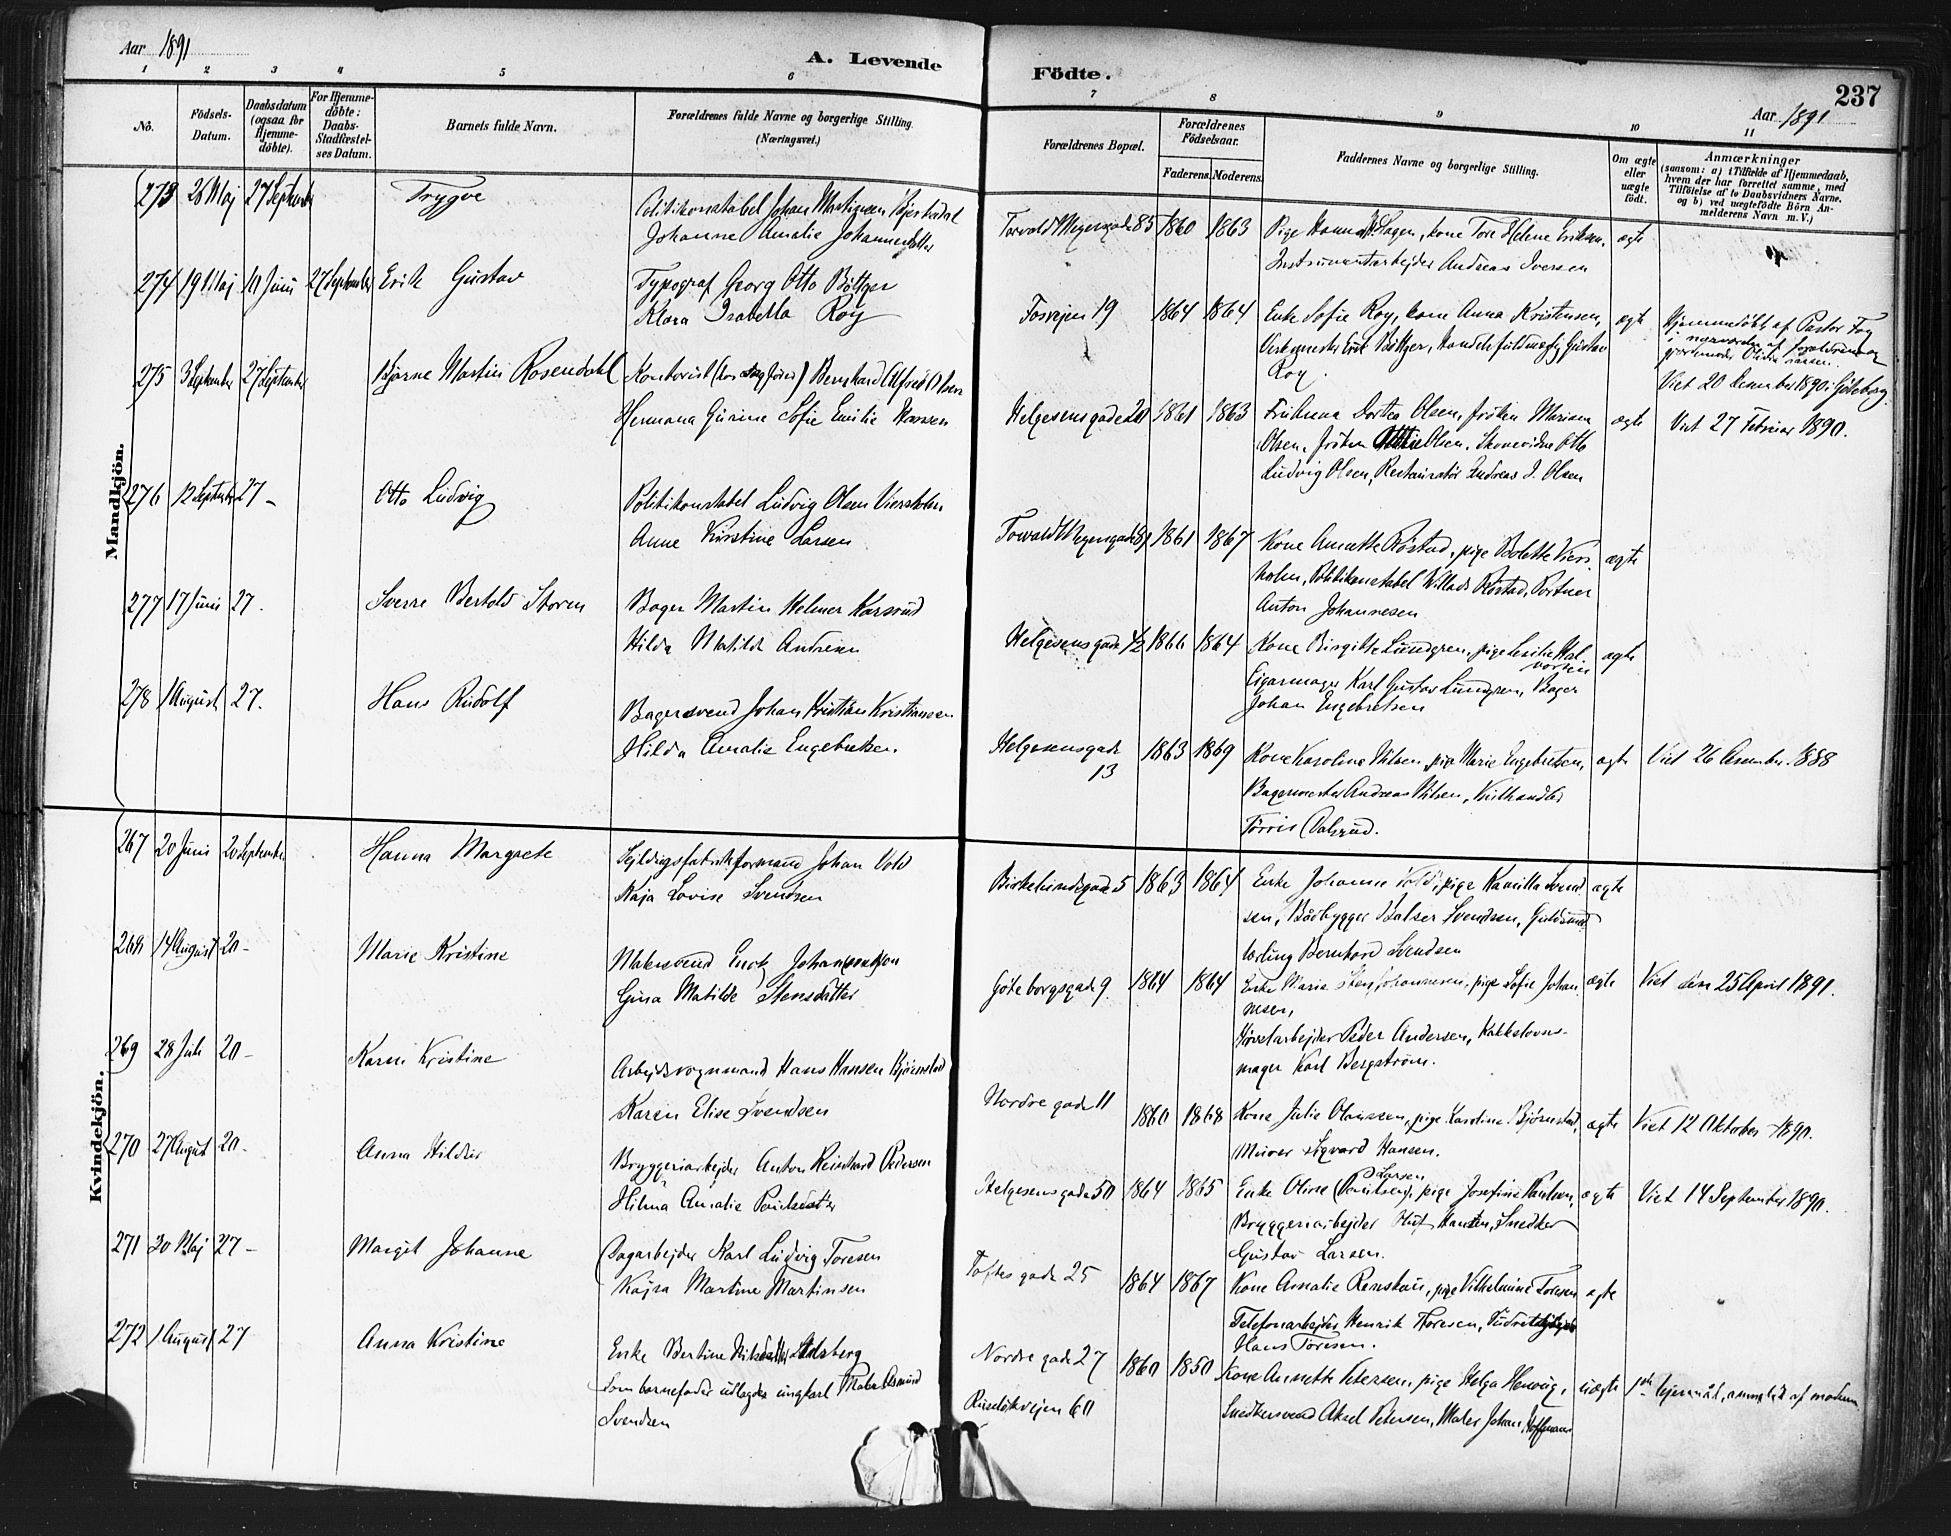 Aar 1891
A. Levende
Födte.
237
Aar 1891
1 2 3 4 5 6 7 8 9 10 11
No.
Födsels-Datum.
Daabsdatum (ogsaa for Hjemme-döbte).
For Hjemme-döbte: Daabs-Stadfæstel-ses Datum.
Barnets fulde Navn.
Forældrenes fulde Navne og borgerlige Stilling. (Næringsvei.)
Forældrenes Bopæl.
Forældrenes Födselsaar.
Faderens. Moderens.
Faddernes Navne og borgerlige Stilling.
Om ægte eller uægte födt.
Anmærkninger
(saasom: a) i Tilfælde af Hjemmedaab, hvem der har forrettet samme, med Tilföielse af to Daabsvidners Navne. og b) ved uægtefödte Börn Anmelderens Navn m. V.)
Mandkjön.
273 26 Maj 27 September Trygve Politikonstabel Johan Martinsen
Johanne Amalie Johannesdatter
Torvald Meyersgade 85 1860 1863 Pige Hanna Hagen, kone Tore Helene Eriksen, ægte
Instrumentarbejder Andreas Iversen
274 19 Maj 10 Juni 27 September Erik Gustav Typograf Georg Otto Böttger
Klara Isabella Roy
Fosvejen 19 1864 1864 Enke Sofie Roy, kone Anna Kristensen, ægte
Værkmester Emil Böttger, Handelsfuldmægtig Gustav
Roy.
Hjemmedöbt af Pastor Fay
i nærværelse af forældrene og
Viet 20 December 1890 i Göteborg
275 3 September 27 September Bjarne Martin Rosendahl Kontorist Bernhard Alfred Olsen
Hermana Gurine Sofie Emilie Hansen
Helgesensgade 20 1861 1863 Frikena Dortea Olsen, fröken Mariane ægte Viet 27 Februar 1890.
Olsen, fröken Olsen, Otto
Ludvig Olsen, Restauratör Andreas J. Olsen
276 12 September 27 - Otto Ludvig Politikonstabel Ludvig Olsen Viersholm
Anne Kirstine Larsen
Torvald Meyersgade 1861 1867 Kone Annette Röstad, pige Bolette Viers- ægte
holm, Politikonstabel Willads Röstad, Portner
Anton Johannesen
277 17 Juni 27. Sverre Bertold Storm Bager Martin Helmer Karsrud
Hilda Matilde Andresen
Helgesensgade 1866 1864 Kone Birgitte Lundgren, pige Hal- ægte
vorsen
Cigarmager Karl Gustav Lundgren, Bager
Johan Engebretsen
278 1 August 27. Hans Rudolf Bagersvend Johan Kristian Kristiansen
Hilda Amalie Engebretsen.
Helgesensgade 13 1863 1869 Kone Karoline Nilsen, pige Marie Engebretsen, ægte Viet 26 December 1888
Bagermester Andreas Nilsen, Kulhandler
Törris Dalsrud.
Kvindekjön.
267 20 Juni 20 September Hanna Margrete Sejldugsfabrikformand Johan Vold
Kaja Lovise Svendsen
Birkelundsgade 5 1863 1864 Enke Johanne Vold, pige Kamilla Svend- ægte
sen, Baadbygger Balser Svendsen, Guldsmed-
lærling Bernhard Svendsen
268 14 August 20 - Marie Kristine Malersvend Enok Johannessen
Gina Matilde Stensdatter
Göteborgsgade 9. 1864 1864 Enke Marie Johannesen, pige Sofie Johan- ægte Viet den 25 April 1891.
nesen,
Peder Andersen, Kakkelovns-
mager Karl Bergström.
269 28 Juli 20 - Karen Kristine Arbejdsvognmand Hans Hansen Björnstad
Karen Elise Svendsen
Nordre gade 11 1860 1868 Kone Julie Olaussen, pige Karoline Björnstad, ægte Viet 12 Oktober 1890.
Murer Sigvard Hansen.
270 27 August 20 - Anna Hildur Bryggeriarbejder Anton Reinhard Pedersen
Hilma Amalie Paulsdatter
Helgesensgade 50 1864 1865 Enke Oline Larsen, pige Josefine Paulsen, ægte Viet 14 September 1890.
Bryggeriarbejder Oluf Hansen, Snedker
Gustav Larsen.
271 30 Maj 27 - Margit Johanne Dagarbejder Karl Ludvig Toresen
Kajsa Martine Martinsen
Toftes gade 25 1864 1867 Kone Amalie Renskaug, pige Vilhelmine Toresen ægte
Telefonarbejder Henrik Thoresen,
Hans Toresen.
272 1 August 27 Anna Kristine Enke Bertine Nilsdatter
Som barnefader udlagdes ungkarl Maler Asmund
Svendsen
Nordre gade 27 1860 1850 Kone Annette Petersen, pige Helga Henvig, uægte 1ste lejermaal, anmeldt af moderen
Ruselökvejen 60 Snedkersvend Aksel Petersen, Maler Johan Hoffmann